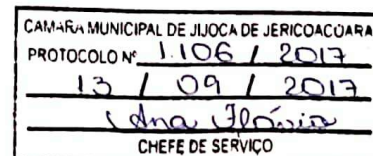 CAMARA MUNICIPAL DE JIJOCA DE JERICOACOARA
PROTOCOLO Nº 1.106 / 2017
13 / 09 / 2017
Ana Flávia
CHEFE DE SERVIÇO